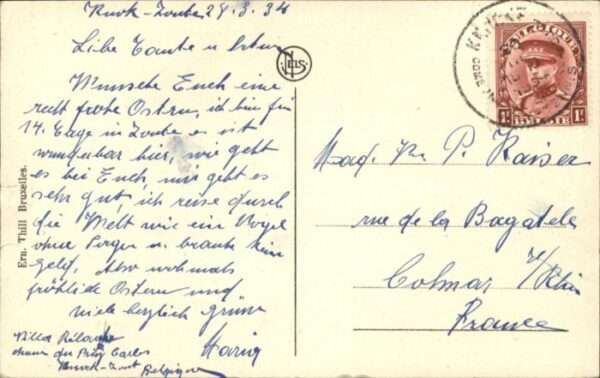 Knok-Zoute 29.3.34
Liebe Tante u
Wünsche Euch eine
recht frohe Ostern, ich bin für
14. Tage in Zoute es ist
wunderbar hier, wie geht
es bei Euch, mir geht es
sehr gut, ich reise durch
die Welt wie ein Vogel
ohne Sorgen u. brauche kein
geld, Also nochmals
fröhliche Ostern und
viele herzlich grüsse
Villa
Knock-Zout Belgique
Ern. Thill Bruxelles.
NELS
1F 1F
BELGIE
Mad. P. Kaiser
rue de la Bagatelle
Colmar /Rhin
France